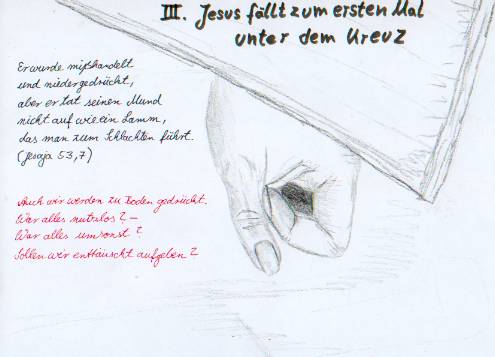 III. Jesus fällt zum ersten Mal
unter dem Kreuz
Er wurde mißhandelt
und niedergedrückt,
aber er tat seinen Mund
nicht auf wie ein Lamm,
das man zum Schlachten führt.
(Jesaja 53,7)
Auch wir werden zu Boden gedrückt.
War alles nutzlos? –
War alles umsonst?
Sollen wir enttäuscht aufgeben?